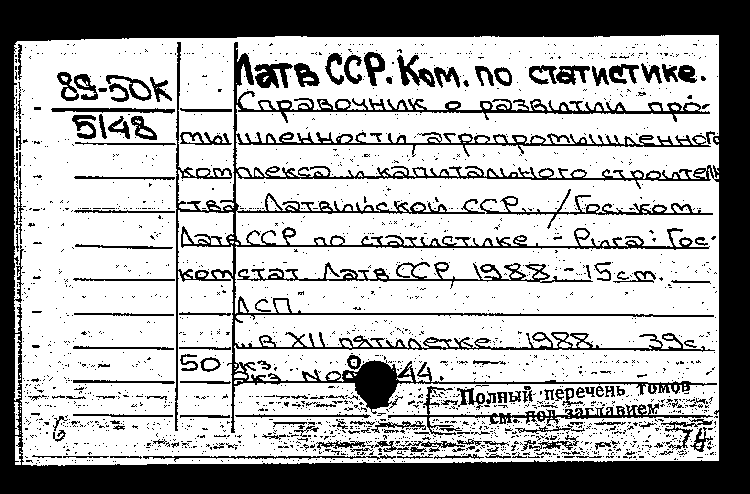 89-50К
5148
Латв ССР. Ком. по статистике.
Справочник о развитии про-
мышленности, агропромышленного
комплекса и капитального строитель
ства Латвийской ССР... / Гос. ком.
Латв ССР по статистике. - Рига: Гос-
комстат Латв ССР, 1988. - 15 см.
ДСП.
... в XII пятилетке 1988. 39с.
50 экз.
Экз. 44.
Полный перечень томов
см. под заглавием
6